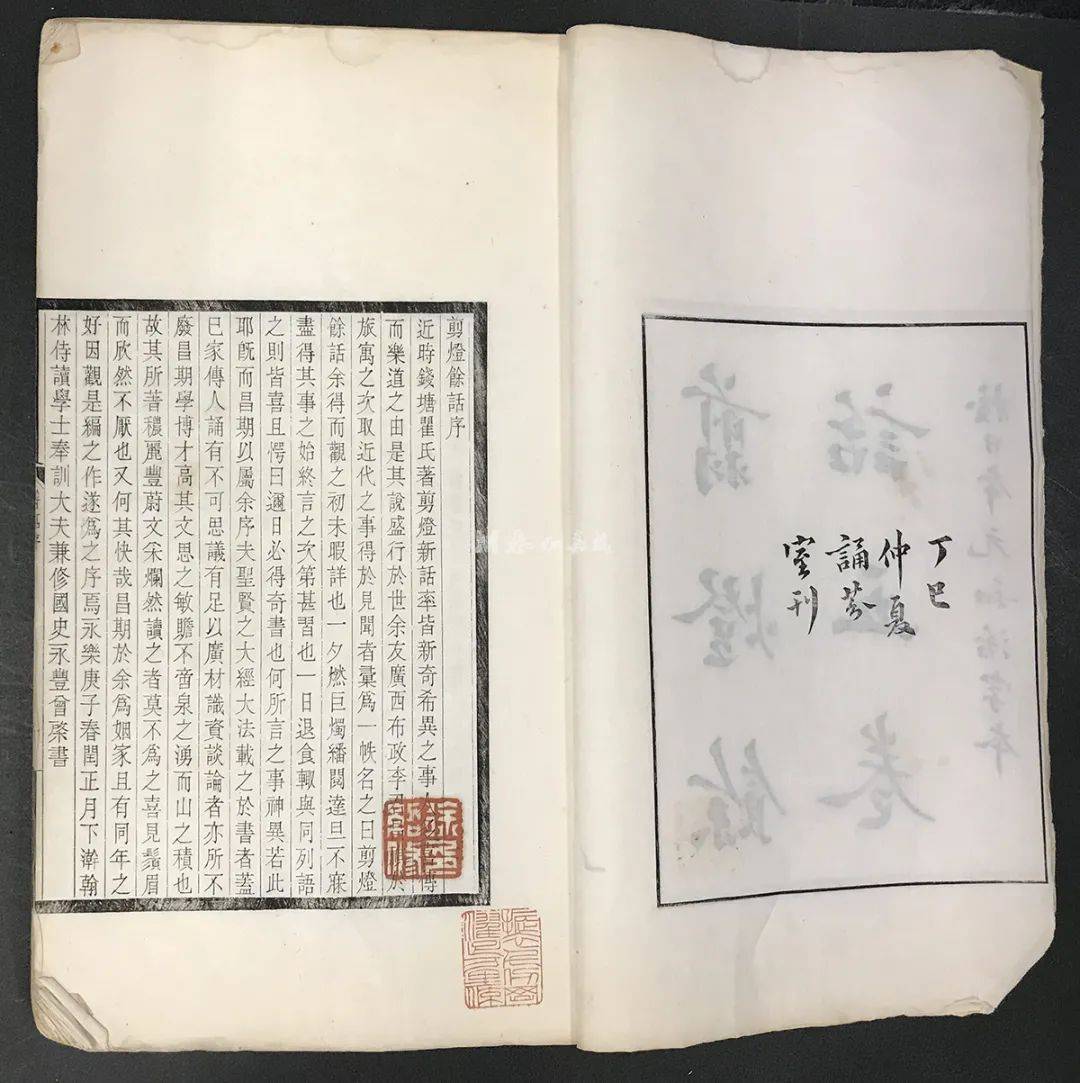 丁巳
仲夏
誦芬
室刊
剪燈餘話序
近時錢塘瞿氏著剪燈新話率皆新奇希異之事人多喜傳
而樂道之由是其說盛行於世余友廣西布政李君昌期於
旅寓之次取近代之事得於見聞者彙爲一帙名之曰剪燈
餘話余得而觀之初未暇詳也一夕燃巨燭繙閱達旦不寐
盡得其事之始終言之次第甚習也一日退食輒與同列語
之則皆喜且愕曰邇日必得奇書也何所言之事神異若此
耶旣而昌期以屬余序夫聖賢之大經大法載之於書者蓋
已家傳人誦有不可思議有足以廣材識資談論者亦所不
廢昌期學博才高其文思之敏贍不啻泉之湧而山之積也
故其所著穠麗豐蔚文采爛然讀之者莫不爲之喜見鬚眉
而欣然不厭也又何其快哉昌期於余爲姻家且有同年之
好因觀是編之作遂爲之序焉永樂庚子春閏正月下澣翰
林侍讀學士奉訓大夫兼修國史永豐曾棨書